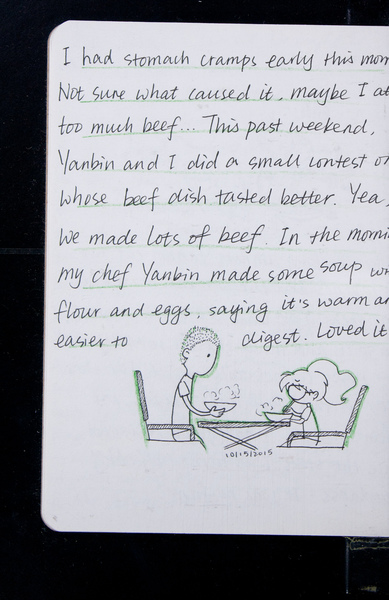 I had stomach cramps early this mor
Not sure what caused it, maybe I at
too much beef... This past weekend,
Yanbin and I did a small contest on
whose beef dish tasted better. Yea,
we made lots of beef. In the morni
my chef Yanbin made some soup wi
flour and eggs, saying it's warm an
easier to digest. Loved it
10/15/2015